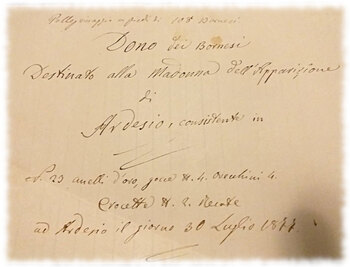 Pellegrinaggio a piedi di 108 Bornesi
Dono dei Bornesi
Destinato alla Madonna dell'Apparizione
di
Ardesio, consistente in
N. 23 anelli d'oro, gocce N. 4. Orecchini 4.
Crocette N. 2. Recate
ad Ardesio il giorno 30 Luglio 1877.